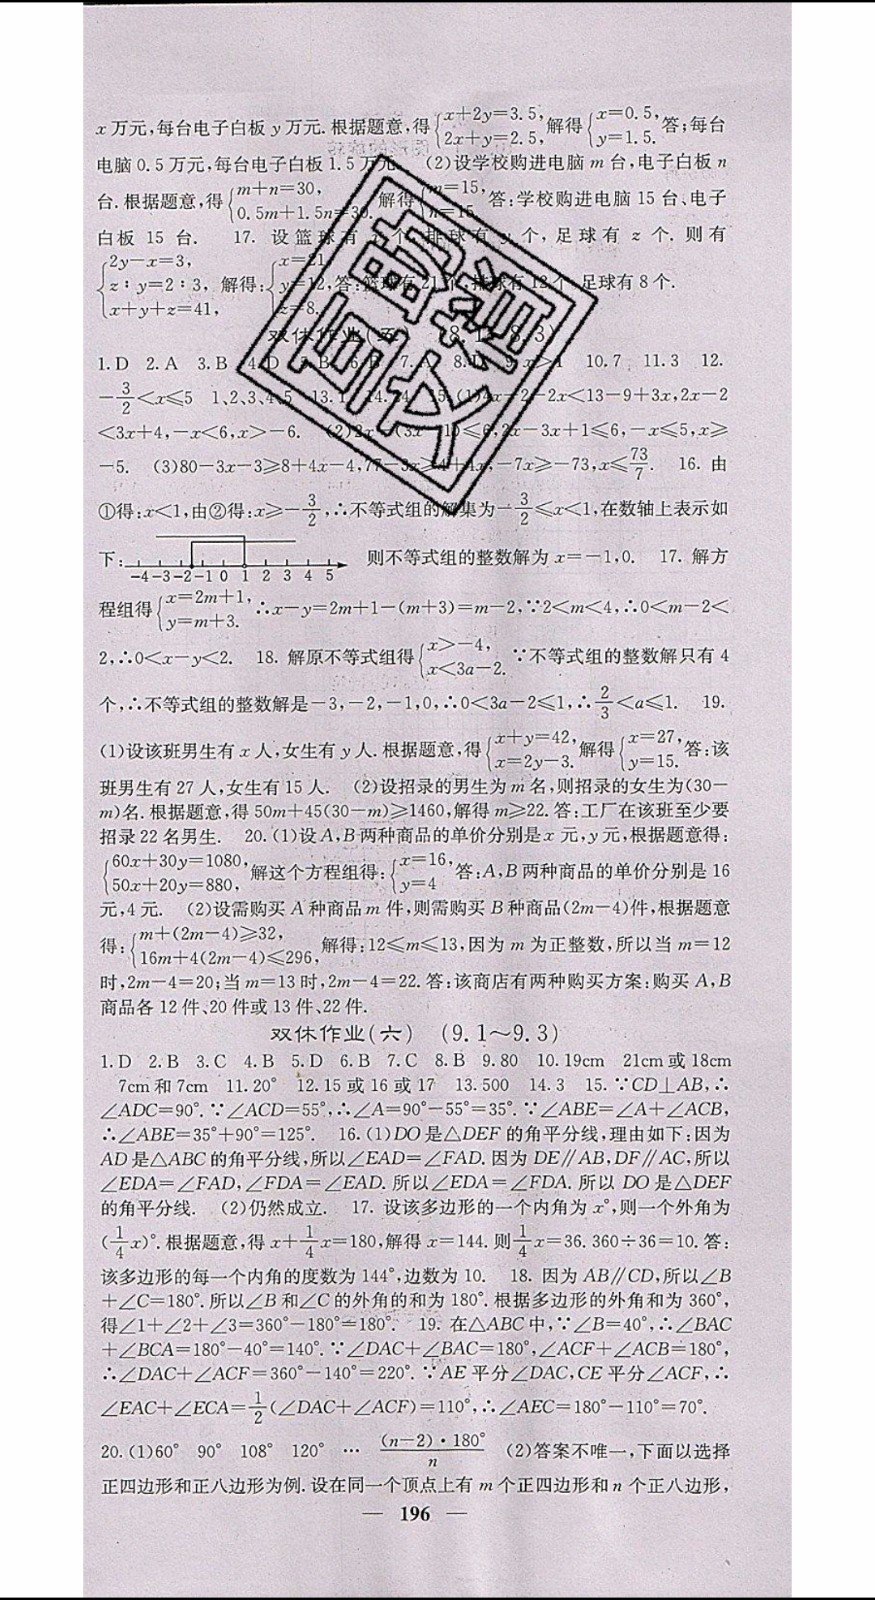 x万元,每台电子白板y万元.根据题意,得{x+2y=3.5, 2x+y=2.5, 解得{x=0.5, y=1.5. 答:每台
电脑0.5万元,每台电子白板1.5万元. (2)设学校购进电脑m台,电子白板n
台.根据题意,得{m+n=30, 0.5m+1.5n=30. 解得{m=15, n=15. 答:学校购进电脑15台、电子
白板15台. 17. 设篮球有 个,排球有y个,足球有z个.则有
{2y-x=3, z∶y=2∶3, x+y+z=41, 解得:{x=21, y=12, z=8. 答:篮球有21个,排球有12个,足球有8个.
双休作业(五) (8.1~8.3)
1.D 2.A 3.B 4.D 5.B 6.B 7.A 8. 9.x>1 10.7 11.3 12.
-3/2<x≤5 1、2、3、4、5 13.1 14. 15.(1)4x-2-2x<13-9+3x,2x-2
<3x+4,-x<6,x>-6. (2)2x-(3x-1)≤6,2x-3x+1≤6,-x≤5,x≥
-5. (3)80-3x-3≥8+4x-4,77-3x≥4+4x,-7x≥-73,x≤73/7. 16. 由
①得:x<1,由②得:x≥-3/2,∴不等式组的解集为-3/2≤x<1,在数轴上表示如
下: -4 -3 -2 -1 0 1 2 3 4 5 则不等式组的整数解为x=-1,0. 17. 解方
程组得{x=2m+1, y=m+3. ∴x-y=2m+1-(m+3)=m-2,∵2<m<4,∴0<m-2<
2,∴0<x-y<2. 18. 解原不等式组得{x>-4, x<3a-2. ∵不等式组的整数解只有4
个,∴不等式组的整数解是-3,-2,-1,0,∴0<3a-2≤1,∴2/3<a≤1. 19.
(1)设该班男生有x人,女生有y人.根据题意,得{x+y=42, x=2y-3. 解得{x=27, y=15. 答:该
班男生有27人,女生有15人. (2)设招录的男生为m名,则招录的女生为(30-
m)名.根据题意,得50m+45(30-m)≥1460,解得m≥22.答:工厂在该班至少要
招录22名男生. 20.(1)设A,B两种商品的单价分别是x元,y元,根据题意得:
{60x+30y=1080, 50x+20y=880, 解这个方程组得:{x=16, y=4 答:A,B两种商品的单价分别是16
元,4元. (2)设需购买A种商品m件,则需购买B种商品(2m-4)件,根据题意
得:{m+(2m-4)≥32, 16m+4(2m-4)≤296, 解得:12≤m≤13,因为m为正整数,所以当m=12
时,2m-4=20;当m=13时,2m-4=22.答:该商店有两种购买方案:购买A,B
商品各12件、20件或13件、22件.
双休作业(六) (9.1~9.3)
1.D 2.B 3.C 4.B 5.D 6.B 7.C 8.B 9.80 10.19cm 21cm或18cm
7cm和7cm 11.20° 12.15或16或17 13.500 14.3 15.∵CD⊥AB,∴
∠ADC=90°.∵∠ACD=55°,∴∠A=90°-55°=35°.∵∠ABE=∠A+∠ACB,
∴∠ABE=35°+90°=125°. 16.(1)DO是△DEF的角平分线,理由如下:因为
AD是△ABC的角平分线,所以∠EAD=∠FAD.因为DE∥AB,DF∥AC,所以
∠EDA=∠FAD,∠FDA=∠EAD.所以∠EDA=∠FDA.所以DO是△DEF
的角平分线. (2)仍然成立. 17. 设该多边形的一个内角为x°,则一个外角为
(1/4x)°.根据题意,得x+1/4x=180,解得x=144.则1/4x=36.360÷36=10.答:
该多边形的每一个内角的度数为144°,边数为10. 18. 因为AB∥CD,所以∠B
+∠C=180°.所以∠B和∠C的外角的和为180°.根据多边形的外角和为360°,
得∠1+∠2+∠3=360°-180°=180°. 19. 在△ABC中,∵∠B=40°,∴∠BAC
+∠BCA=180°-40°=140°.∵∠DAC+∠BAC=180°,∠ACF+∠ACB=180°,
∴∠DAC+∠ACF=360°-140°=220°.∵AE平分∠DAC,CE平分∠ACF,∴
∠EAC+∠ECA=1/2(∠DAC+∠ACF)=110°,∴∠AEC=180°-110°=70°.
20.(1)60° 90° 108° 120° … (n-2)·180°/n (2)答案不唯一,下面以选择
正四边形和正八边形为例.设在同一个顶点上有m个正四边形和n个正八边形,
— 196 —